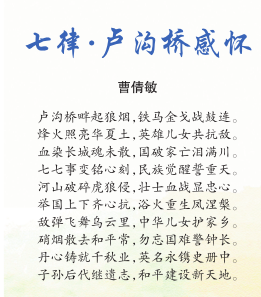 七律·卢沟桥感怀
曹倩敏
卢沟桥畔起狼烟,铁马金戈战鼓连。
烽火照亮华夏土,英雄儿女共抗敌。
血染长城魂未散,国破家亡泪满川。
七七事变铭心刻,民族觉醒誓重天。
河山破碎虎狼侵,壮士血战显忠心。
举国上下齐心抗,浴火重生凤涅槃。
敌弹飞舞乌云里,中华儿女护家乡。
硝烟散去和平常,勿忘国难警钟长。
丹心铸就千秋业,英名永镌史册中。
子孙后代继遗志,和平建设新天地。